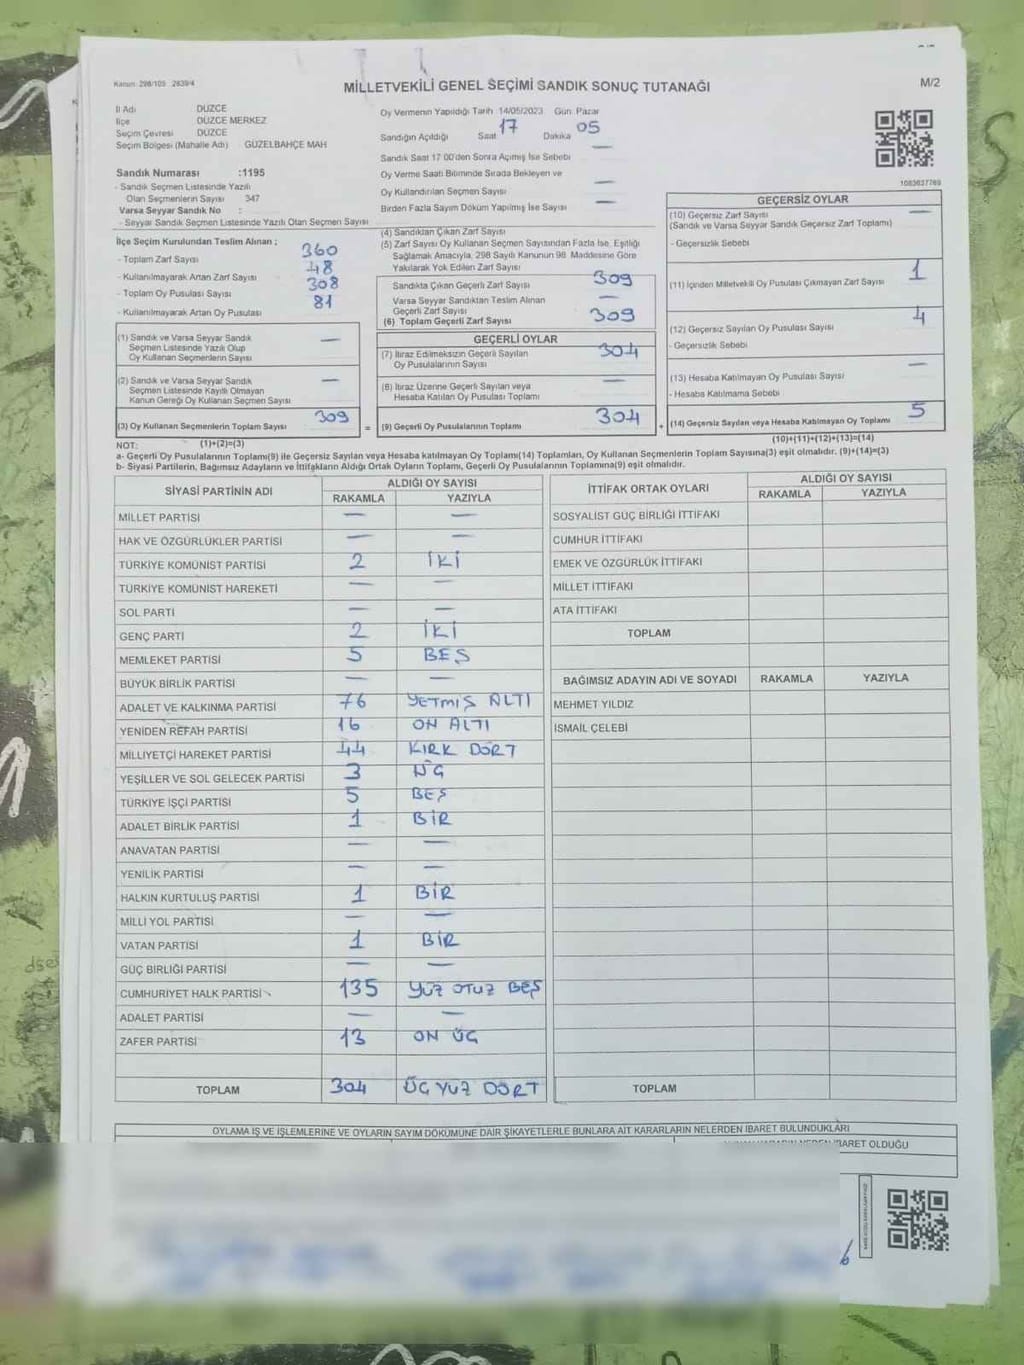 Kanun: 298/105 2839/4
MİLLETVEKİLİ GENEL SEÇİMİ SANDIK SONUÇ TUTANAĞI
M/2
İl Adı DÜZCE
İlçe DÜZCE MERKEZ
Seçim Çevresi DÜZCE
Seçim Bölgesi (Mahalle Adı) GÜZELBAHÇE MAH
Oy Vermenin Yapıldığı Tarih 14/05/2023 Gün Pazar
Sandığın Açıldığı Saat 17 Dakika 05
Sandık Saat 17 00'den Sonra Açılmış İse Sebebi —
Oy Verme Saati Bitiminde Sırada Bekleyen ve
Oy Kullandırılan Seçmen Sayısı —
Birden Fazla Sayım Döküm Yapılmış İse Sayısı —
1083637769
Sandık Numarası :1195
- Sandık Seçmen Listesinde Yazılı
Olan Seçmenlerin Sayısı 347
Varsa Seyyar Sandık No :
- Seyyar Sandık Seçmen Listesinde Yazılı Olan Seçmen Sayısı
İlçe Seçim Kurulundan Teslim Alınan ;
- Toplam Zarf Sayısı 360
- Kullanılmayarak Artan Zarf Sayısı 48
- Toplam Oy Pusulası Sayısı 308
- Kullanılmayarak Artan Oy Pusulası 81
(1) Sandık ve Varsa Seyyar Sandık
Seçmen Listesinde Yazılı Olup
Oy Kullanan Seçmenlerin Sayısı —
(2) Sandık ve Varsa Seyyar Sandık
Seçmen Listesinde Kayıtlı Olmayan
Kanun Gereği Oy Kullanan Seçmen Sayısı —
(3) Oy Kullanan Seçmenlerin Toplam Sayısı 309
(4) Sandıktan Çıkan Zarf Sayısı
(5) Zarf Sayısı Oy Kullanan Seçmen Sayısından Fazla İse, Eşitliği
Sağlamak Amacıyla, 298 Sayılı Kanunun 98. Maddesine Göre
Yakılarak Yok Edilen Zarf Sayısı
Sandıkta Çıkan Geçerli Zarf Sayısı 309
Varsa Seyyar Sandıktan Teslim Alınan
Geçerli Zarf Sayısı —
(6) Toplam Geçerli Zarf Sayısı 309
GEÇERLİ OYLAR
(7) İtiraz Edilmeksizin Geçerli Sayılan
Oy Pusulalarının Sayısı 304
(8) İtiraz Üzerine Geçerli Sayılan veya
Hesaba Katılan Oy Pusulası Toplamı —
= (9) Geçerli Oy Pusulalarının Toplamı 304
GEÇERSİZ OYLAR
(10) Geçersiz Zarf Sayısı —
(Sandık ve Varsa Seyyar Sandık Geçersiz Zarf Toplamı)
- Geçersizlik Sebebi
(11) İçinden Milletvekili Oy Pusulası Çıkmayan Zarf Sayısı 1
(12) Geçersiz Sayılan Oy Pusulası Sayısı 4
- Geçersizlik Sebebi
(13) Hesaba Katılmayan Oy Pusulası Sayısı —
- Hesaba Katılmama Sebebi
+ (14) Geçersiz Sayılan veya Hesaba Katılmayan Oy Toplamı 5
NOT: (1)+(2)=(3) (10)+(11)+(12)+(13)=(14)
a- Geçerli Oy Pusulalarının Toplamı(9) ile Geçersiz Sayılan veya Hesaba katılmayan Oy Toplamı(14) Toplamları, Oy Kullanan Seçmenlerin Toplam Sayısına(3) eşit olmalıdır. (9)+(14)=(3)
b- Siyasi Partilerin, Bağımsız Adayların ve İttifakların Aldığı Ortak Oyların Toplamı, Geçerli Oy Pusulalarının Toplamına(9) eşit olmalıdır.
SİYASİ PARTİNİN ADI ALDIĞI OY SAYISI
RAKAMLA YAZIYLA
MİLLET PARTİSİ — —
HAK VE ÖZGÜRLÜKLER PARTİSİ — —
TÜRKİYE KOMÜNİST PARTİSİ 2 İKİ
TÜRKİYE KOMÜNİST HAREKETİ — —
SOL PARTİ — —
GENÇ PARTİ 2 İKİ
MEMLEKET PARTİSİ 5 BEŞ
BÜYÜK BİRLİK PARTİSİ — —
ADALET VE KALKINMA PARTİSİ 76 YETMİŞ ALTI
YENİDEN REFAH PARTİSİ 16 ON ALTI
MİLLİYETÇİ HAREKET PARTİSİ 44 KIRK DÖRT
YEŞİLLER VE SOL GELECEK PARTİSİ 3 ÜÇ
TÜRKİYE İŞÇİ PARTİSİ 5 BEŞ
ADALET BİRLİK PARTİSİ 1 BİR
ANAVATAN PARTİSİ — —
YENİLİK PARTİSİ — —
HALKIN KURTULUŞ PARTİSİ 1 BİR
MİLLİ YOL PARTİSİ — —
VATAN PARTİSİ 1 BİR
GÜÇ BİRLİĞİ PARTİSİ — —
CUMHURİYET HALK PARTİSİ 135 YÜZ OTUZ BEŞ
ADALET PARTİSİ — —
ZAFER PARTİSİ 13 ON ÜÇ
TOPLAM 304 ÜÇ YÜZ DÖRT
İTTİFAK ORTAK OYLARI ALDIĞI OY SAYISI
RAKAMLA YAZIYLA
SOSYALİST GÜÇ BİRLİĞİ İTTİFAKI
CUMHUR İTTİFAKI
EMEK VE ÖZGÜRLÜK İTTİFAKI
MİLLET İTTİFAKI
ATA İTTİFAKI
TOPLAM
BAĞIMSIZ ADAYIN ADI VE SOYADI RAKAMLA YAZIYLA
MEHMET YILDIZ
İSMAİL ÇELEBİ
TOPLAM
OYLAMA İŞ VE İŞLEMLERİNE VE OYLARIN SAYIM DÖKÜMÜNE DAİR ŞİKAYETLERLE BUNLARA AİT KARARLARIN NELERDEN İBARET BULUNDUKLARI
İBARET OLDUĞU